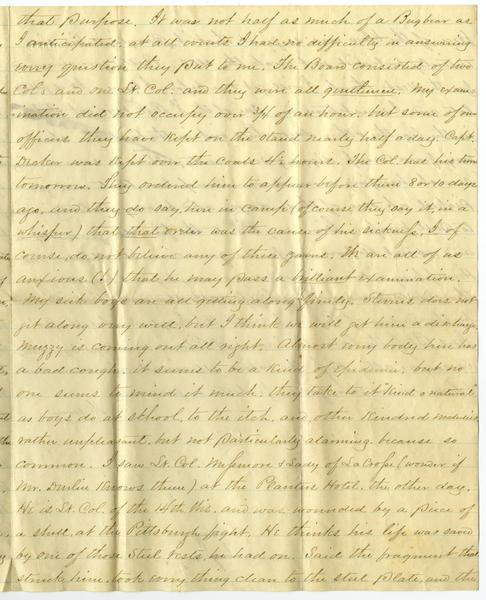 that purpose. It was not half as much of a Bugbear as
I anticipated, at all events I had no difficulty in answering
every question they put to me. The Board consisted of two
Cols and one Lt. Col. and they were all gentlemen. My exam-
ination did not occupy over 3/4 of an hour. but some of our
officers they have kept on the stand nearly half a day. Capt.
Decker was kept over the Coals 4½ hours. The Col. has his turn
tomorrow. They ordered him to appear before them 8 or 10 days
ago, and they do say, here in camp (of course they say it, in a
whisper) that that order was the cause of his sickness, I of
course, do not believe any of these yarns. We are all of us
anxious (!) that he may pass a brilliant examination.
My sick boys are all getting along finely. Stevens does not
get along very well, but I think we will get him a discharge.
Muzzy is coming out all right. Almost every body here has
a bad cough. it seems to be a kind of epidemic, but no
one seems to mind it much. they take to it "kind o natural"
as boys do at school, to the itch, and other kindred maladies,
rather unpleasant, but not particularly alarming because so
common. I saw Lt. Col. Messmore & Lady of LaCrosse (wonder if
Mr. Durlin knows them) at the Planters Hotel, the other day.
He is Lt. Col. of the 14th Wis. and was wounded by a piece of
a shell, at the Pittsburgh fight. He thinks his life was saved
by one of those Steel Vests, he had on. Said the fragment that
struck him, took every thing clean to the steel plate, and the